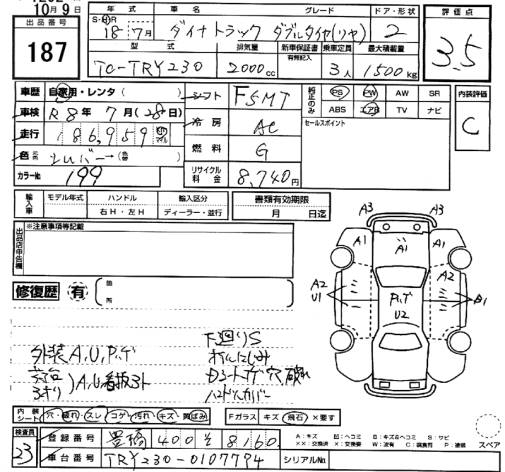 10月9日
出品番号
187
年式 車名 グレード ドア・形状
S・H・R 18年7月 ダイナトラック ダブルタイヤ(リヤ) 2
型式 排気量 新車保証書 有無記入 乗車定員 最大積載量
TC-TRY230 2000cc 3人 1500kg
評価点
3.5
車歴 自家用・レンタ( )
車検 R8年7月(28日)
走行 186,959
色 シルバー→( )
カラー№ 199
シフト F5MT
冷房 AC
燃料 G
リサイクル料金 8,740円
純正のみ PS PW AW SR
ABS エアB TV ナビ
セールスポイント
内装評価
C
輸入車 モデル年式 ハンドル 輸入区分
右H・左H ディーラー・並行
書類有効期限
月 日迄
出品店申告欄 ※注意事項等記載
修復歴 有 箇所
外装A,U,P,ゲ
A,U看板3ト
下廻りS
オイルにじみ
穴 破れ
ハンドルカバー
A3 A3
A1 A1 A1
A2 U1 A2 B1
P,ゲ
U2
内装シート 穴・破れ・スレ・コゲ・汚れ・キズ・黄ばみ Fガラス キズ・飛石・×要す
検査員 23
登録番号 豊橋 400 そ 8160
車台番号 TRY230-0107794 シリアル№
A:キズ U:ヘコミ B:キズ&ヘコミ S:サビ
スペア